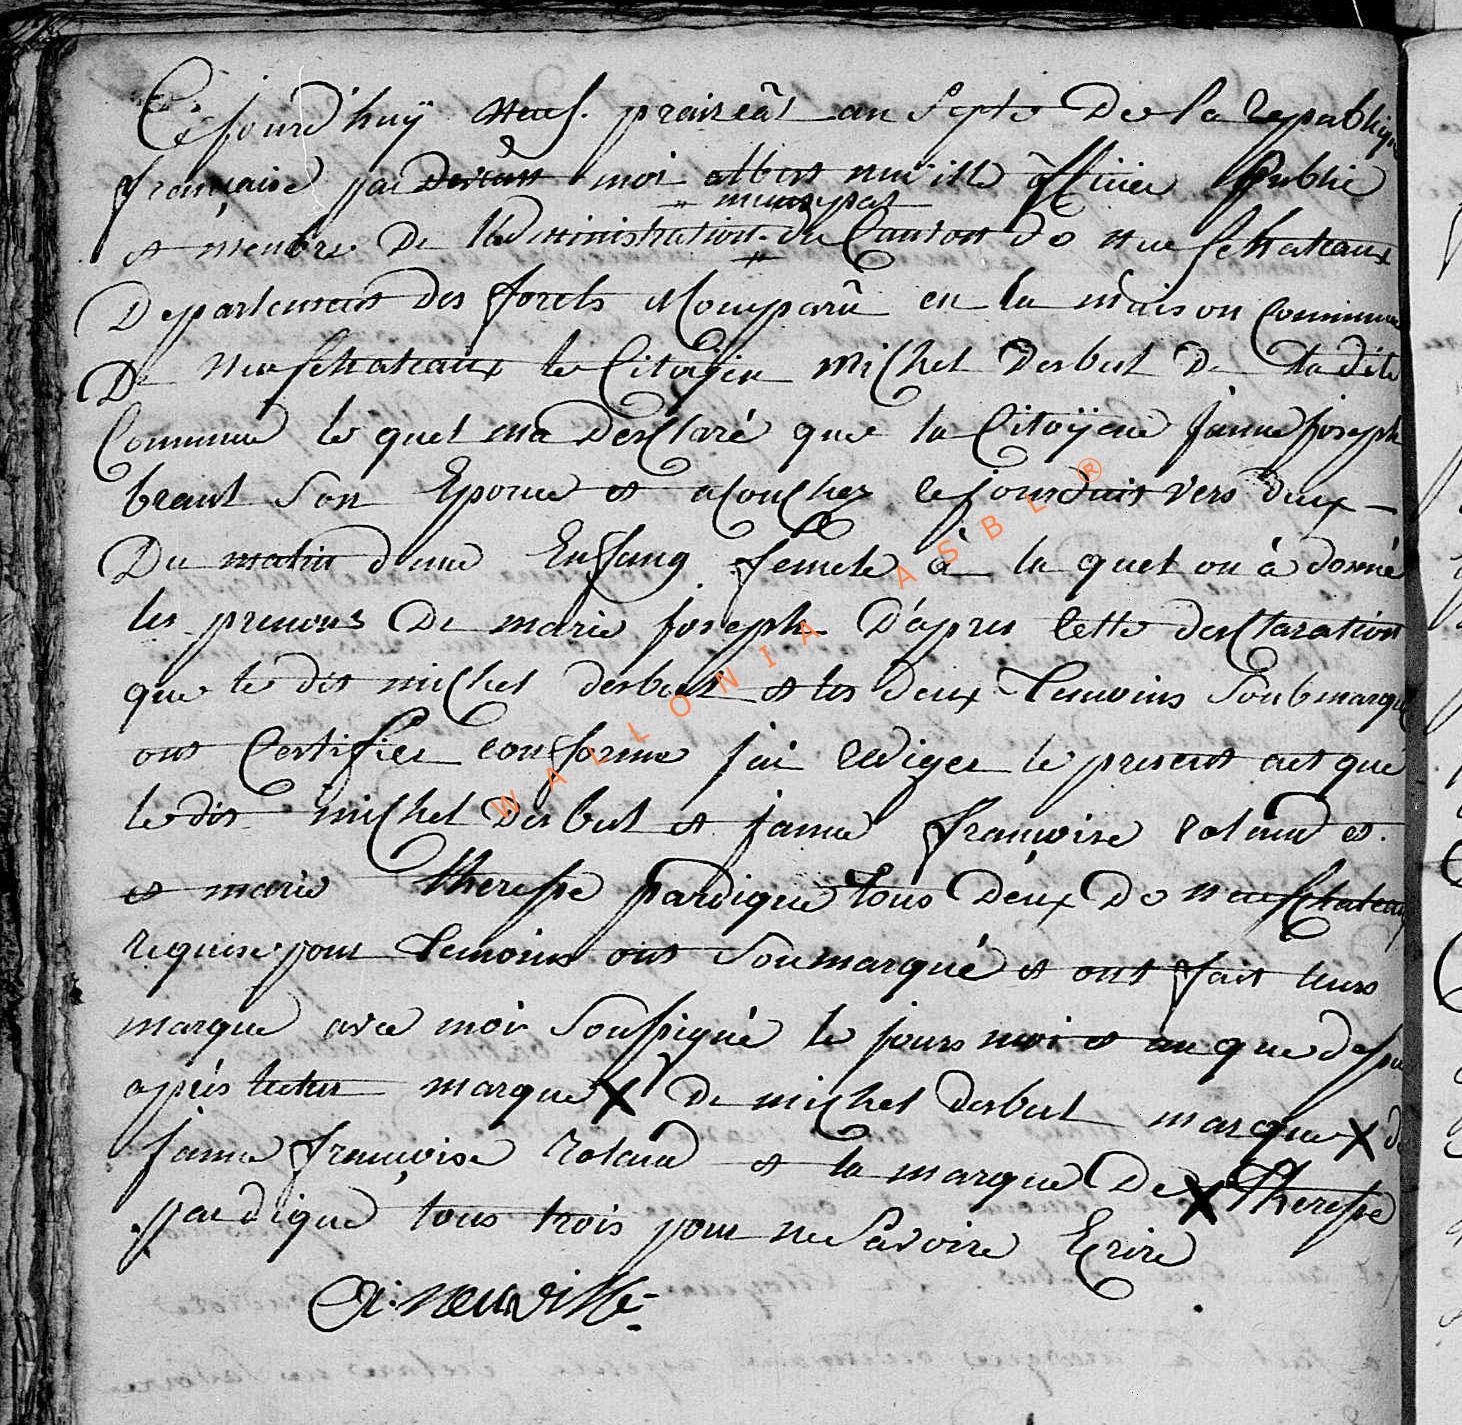 Cejourd'huÿ neuf. prairéal an septe de la Republique
francaise par devant moi albert neuville officier public
" municipal
et menbre de l'administration. du Canton de neufchateaux
"
Departement des forets est Comparû en la maison Commune
De neufchateaux le Citoÿen michel desbut de la dite
Commune le quel ma desclaré que la Citoÿene janne joseph
braut son Epouse et acouchez cejourduit vers deux
Du matin dunne Enfang femele à la quel on à donné
les prenoms De marie joseph D'apres cette desclaration
que le dit michel desbut et les deux temoins soubmarqué
ont Certifiée conforme jai rediger le present act que
le dit michel desbut et janne francoise roland et.
et marie theresse pardique tous deux de neufchateaux
requise pour temoins ont soumarqué et ont fait leurs
marque avec moi soussigné le jours moi et an que dessu
après lectur marque X De michel desbut marque X de
janne francoise roland et la marque De X theresse
pardique tous trois pour ne savoire Ecrire
A. neuville
WALLONIA ASBL ®